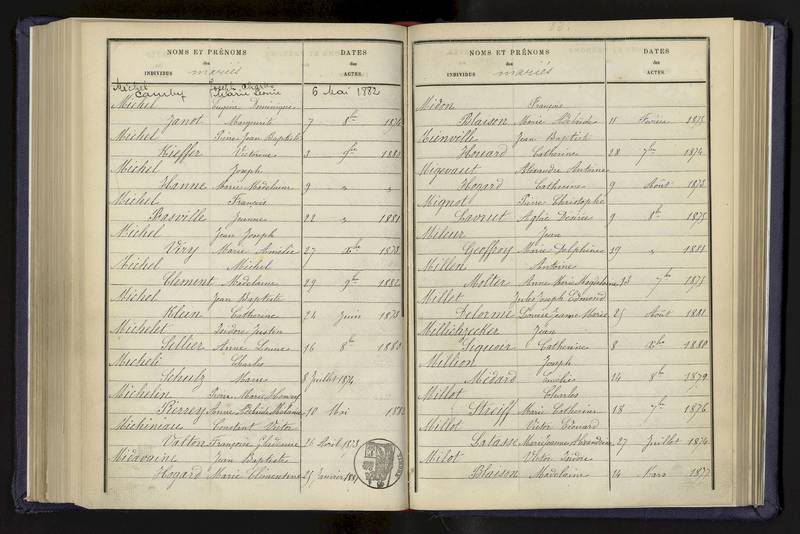 NOMS ET PRÉNOMS DATES
des des
INDIVIDUS mariés ACTES.
Michel Joseph
Camby Marie Louise 6 Mai 1882
Michel Eugène Dominique
Janot Marguerite 7 8bre 1874
Michel Pierre Jean Baptiste
Kieffer Victorine 3 9bre 1880
Michel Joseph
Hanne Marie Madeleine 9 " "
Michel François
Basville Jeanne 22 " 1881
Michel Jean Joseph
Viry Marie Amélie 27 Xbre 1873
Michel Michel
Clement Madelaine 29 9bre 1882
Michel Jean Baptiste
Klein Catherine 24 Juin 1873
Michelet Isidore Justin
Sellier Anne Louise 16 8bre 1880
Micheli Charles
Schultz Marie 8 Juillet 1874
Michelin Pierre Marie Honoré
Pierrey Anne 10 Mai
Michineau Constant Victor
Valton Françoise 26 Août 1873
Médavaine Jean Baptiste
Hogard Marie Clémentine 25 Janvier 1881
NOMS ET PRÉNOMS DATES
des des
INDIVIDUS mariés ACTES.
Midon François
Blaison Marie 11 Février 1875
Jean Baptiste
Honard Catherine 28 7bre 1874
Alexandre Antoine
Hogard Catherine 9 Août 1873
Mignot Pierre Christophe
Aglié Désirée 9 8bre 1875
Jean
Geoffroy Marie Delphine 19 " 1881
Millen Antoine
Molter Anne Marie Magdelaine 13 7bre 1875
Millet Jules Joseph Edmond
Delorme Louise Jeanne Marie 25 Août 1881
Jean
Catherine 8 Xbre 1880
Million Joseph
Médard 14 8bre 1879
Millot Charles
Streiff Marie Catherine 18 7bre 1876
Millot Victor Edouard
Salasse Marie Jeanne 27 Juillet 1874
Milot Victor Isidore
Blaison Madelaine 14 Mars 1877